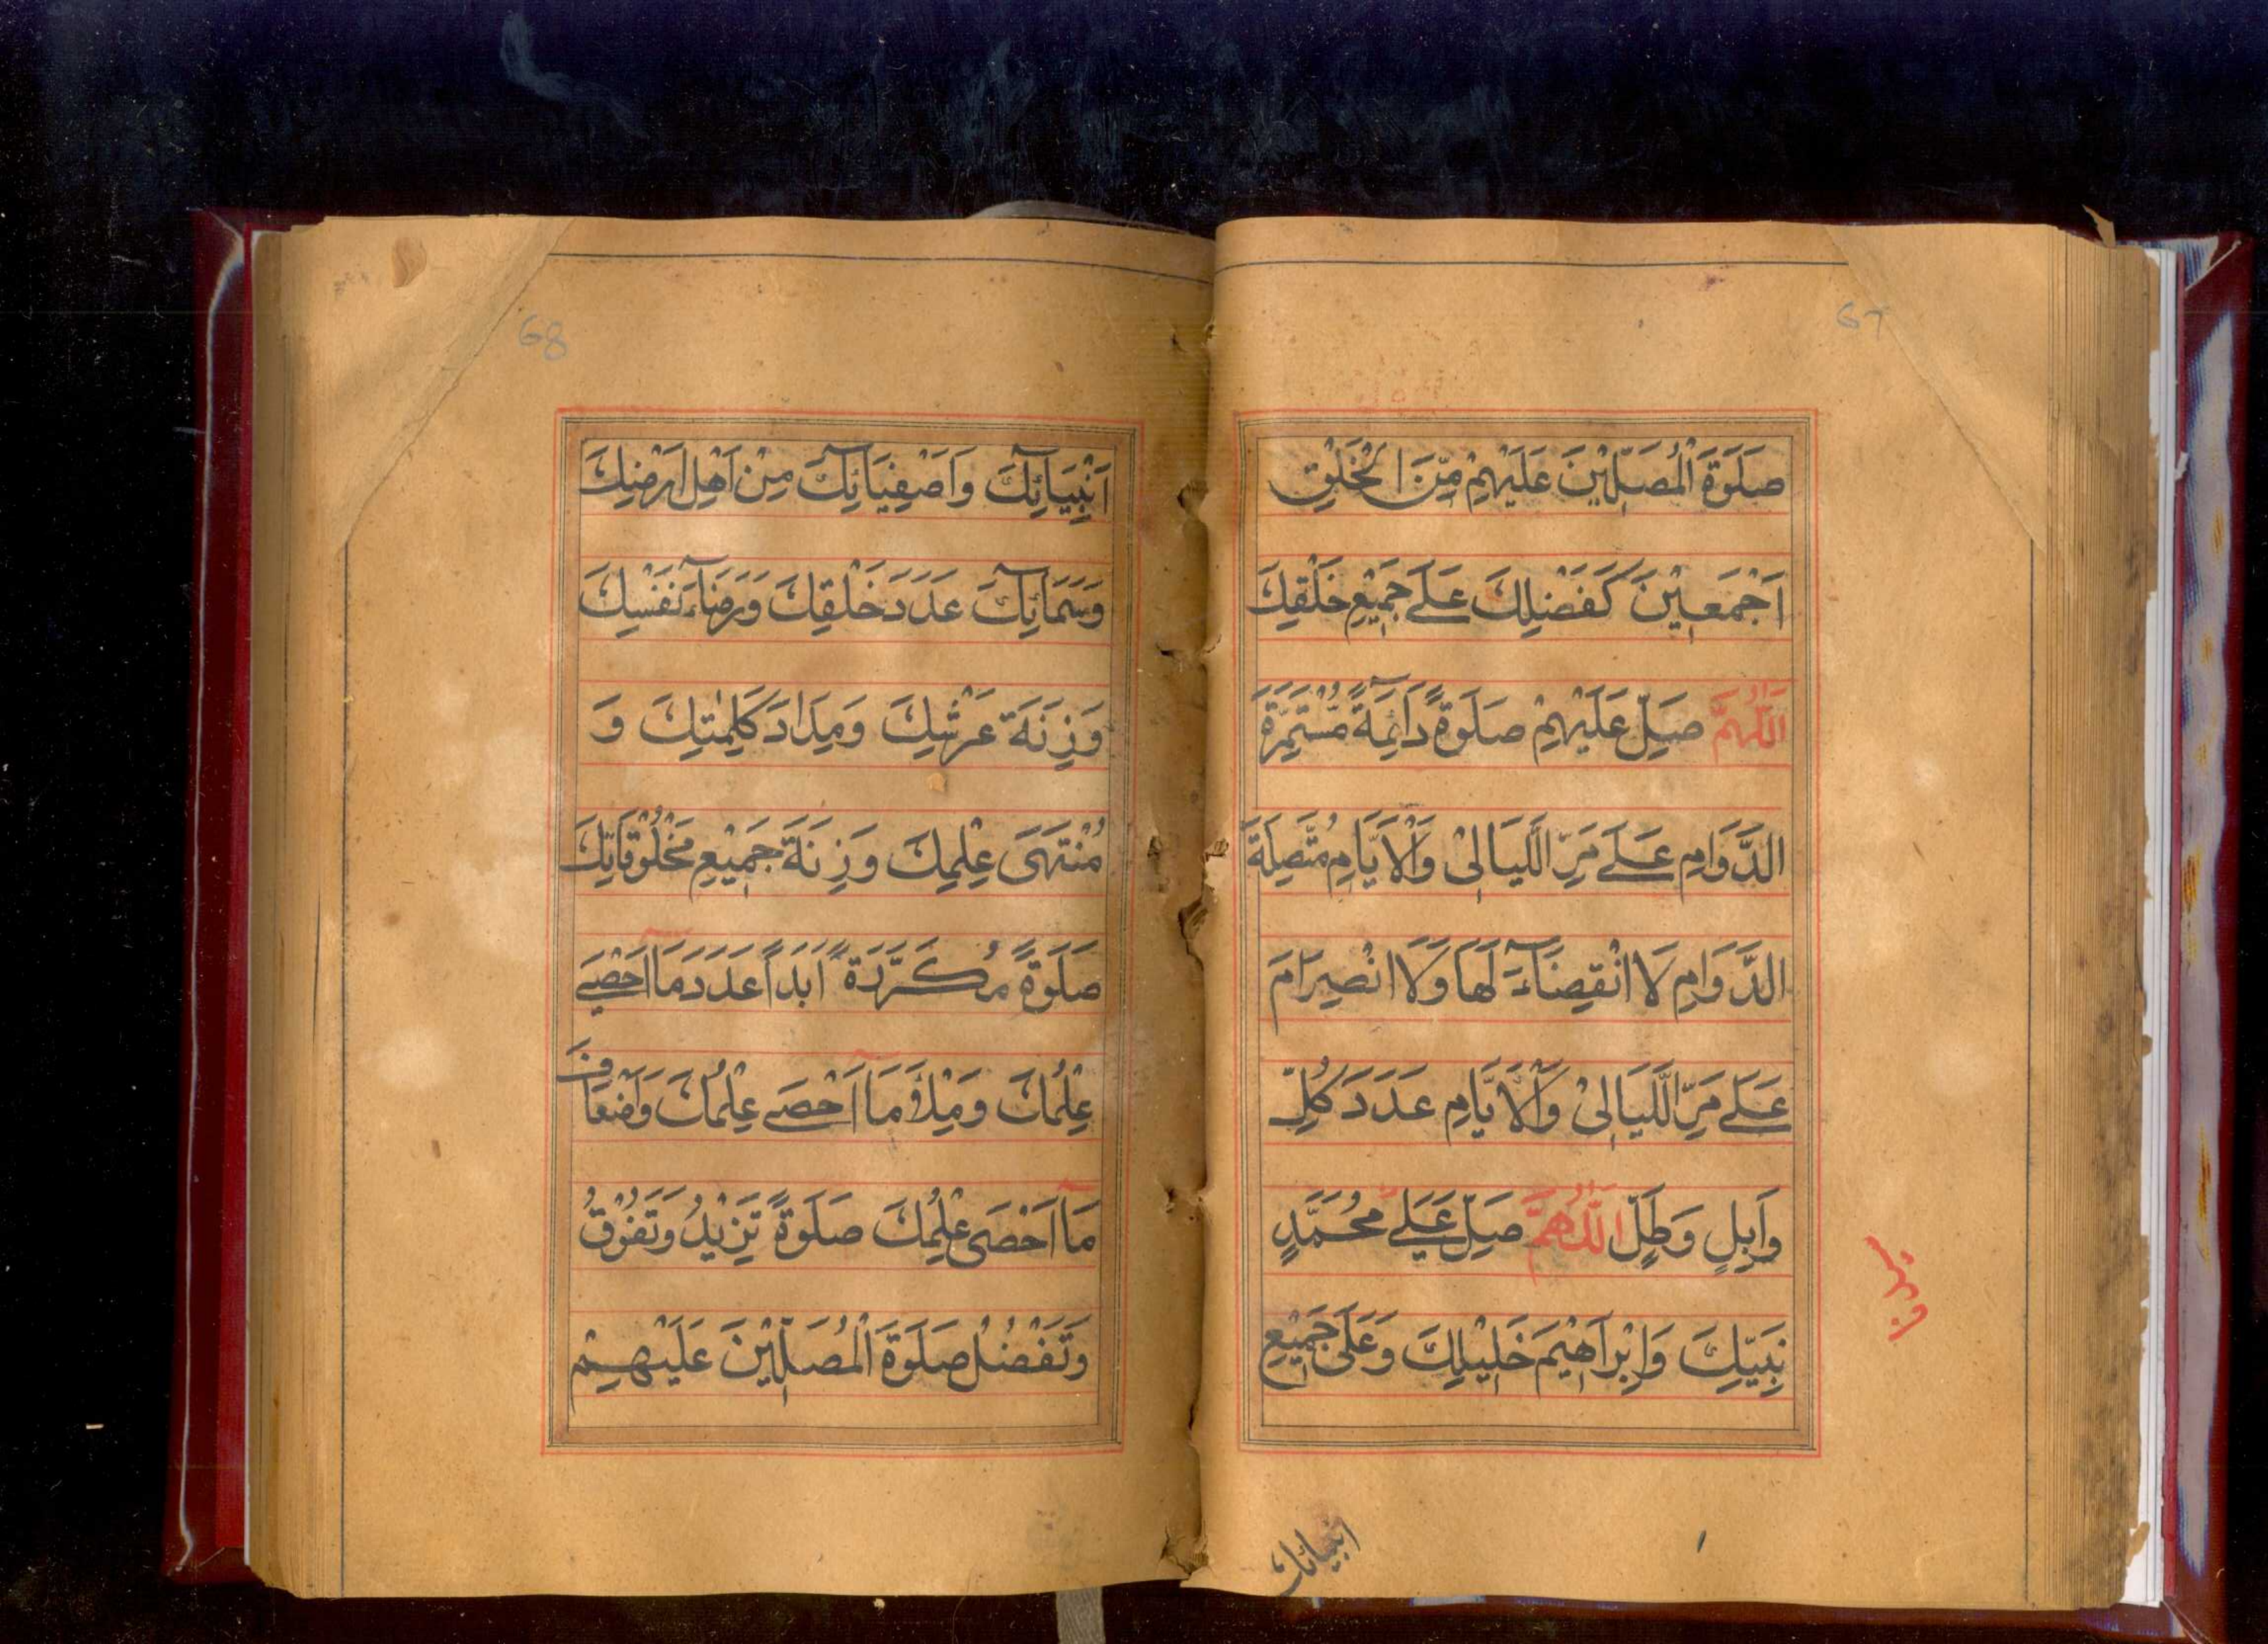 67
صَلَوٰةَ الْمُصَلِّيْنَ عَلَيْهِمْ مِّنَ الْخَلْقِ
اَجْمَعِيْنَ كَفَضْلِكَ عَلٰے جَمِيْعِ خَلْقِكَ
اَللّٰهُمَّ صَلِّ عَلَيْهِمْ صَلٰوةً دَآئِمَةً مُّسْتَمِرَّةَ
الدَّوَامِ عَلٰے مَرِّ اللَّيَالِيْ وَالْاَيَّامِ مُتَّصِلَةَ
الدَّوَامِ لَا انْقِضَآءَ لَهَا وَلَا انْصِرَامَ
عَلٰے مَرِّ اللَّيَالِيْ وَالْاَيَّامِ عَدَدَ كُلِّ
وَابِلٍ وَطَلٍّ اَللّٰهُمَّ صَلِّ عَلٰے مُحَمَّدٍ
نَبِيِّكَ وَاِبْرَاهِيْمَ خَلِيْلِكَ وَعَلٰى جَمِيْعِ
انبيائك
68
اَنْبِيَآئِكَ وَاَصْفِيَآئِكَ مِنْ اَهْلِ اَرْضِكَ
وَسَمَآئِكَ عَدَدَ خَلْقِكَ وَرِضَآءَ نَفْسِكَ
وَزِنَةَ عَرْشِكَ وَمِدَادَ كَلِمٰتِكَ وَ
مُنْتَهٰى عِلْمِكَ وَزِنَةَ جَمِيْعِ مَخْلُوْقَاتِكَ
صَلٰوةً مُكَرَّرَةً اَبَدًا عَدَدَ مَا اَحْصٰے
عِلْمُكَ وَمِلْأَ مَا اَحْصٰے عِلْمُكَ وَاَضْعَافَ
مَا اَحْصٰى عِلْمُكَ صَلٰوةً تَزِيْدُ وَتَفُوْقُ
وَتَفْضُلُ صَلٰوةَ الْمُصَلِّيْنَ عَلَيْهِمْ